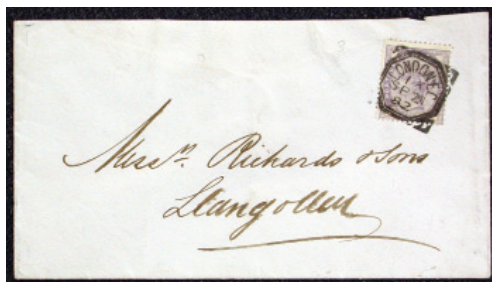 LONDON E.C
82
Messrs. Richards & Sons
Llangollen